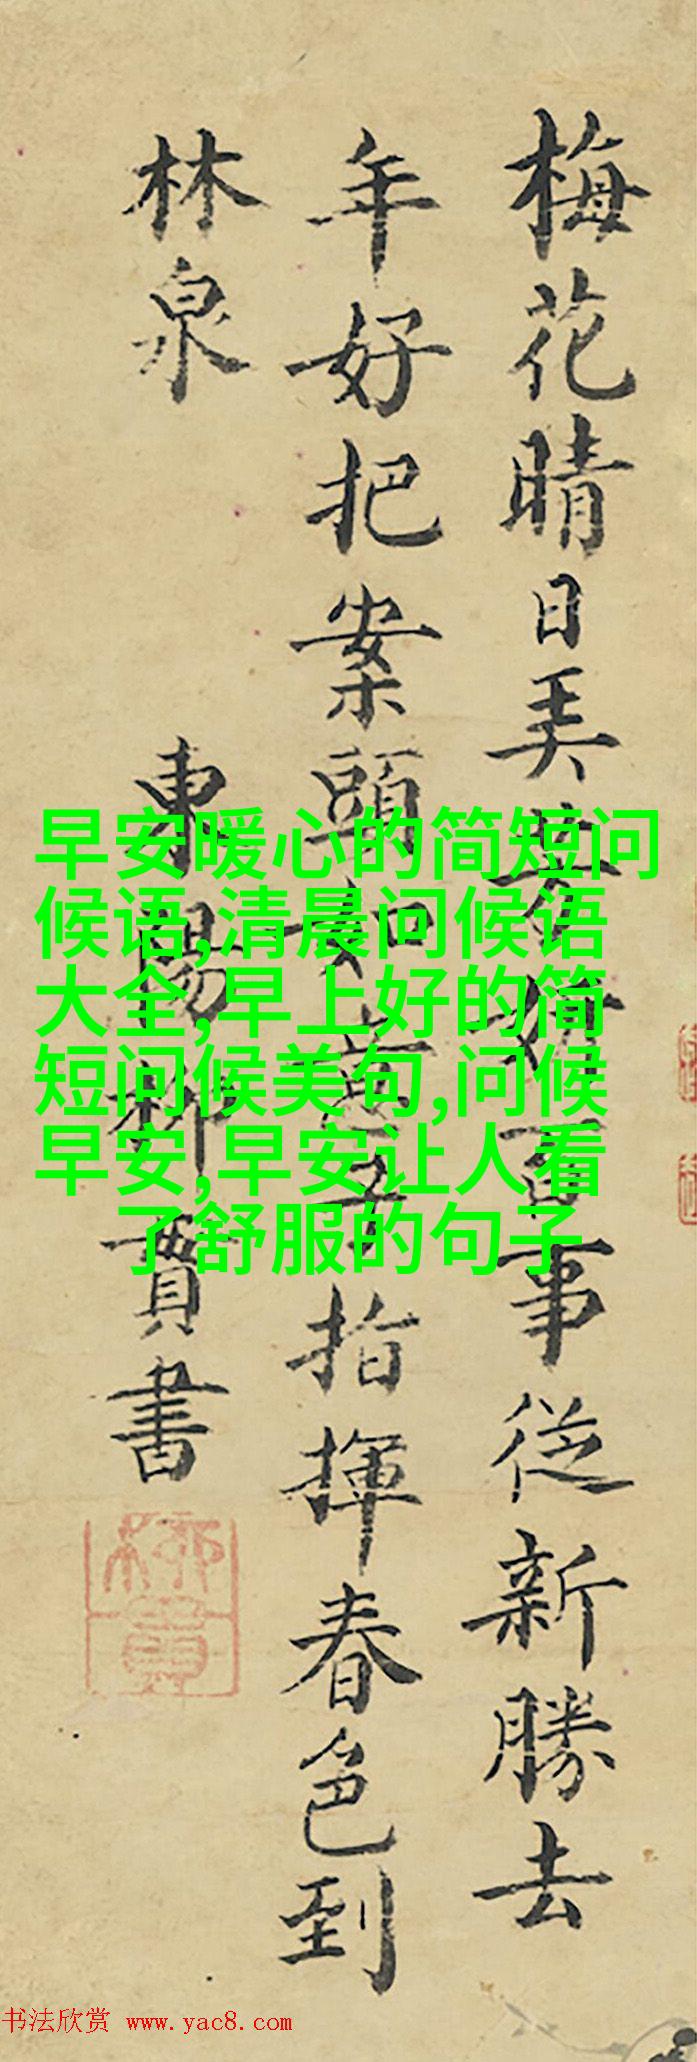 梅花晴日妍百事從新勝去
年好把案頭如意子指揮春色到
林泉
東陽柳貫書
柳貫
早安暖心的简短问
候语,清晨问候语
大全,早上好的简
短问候美句,问候
早安,早安让人看
了舒服的句子
书法欣赏 www.yac8.com